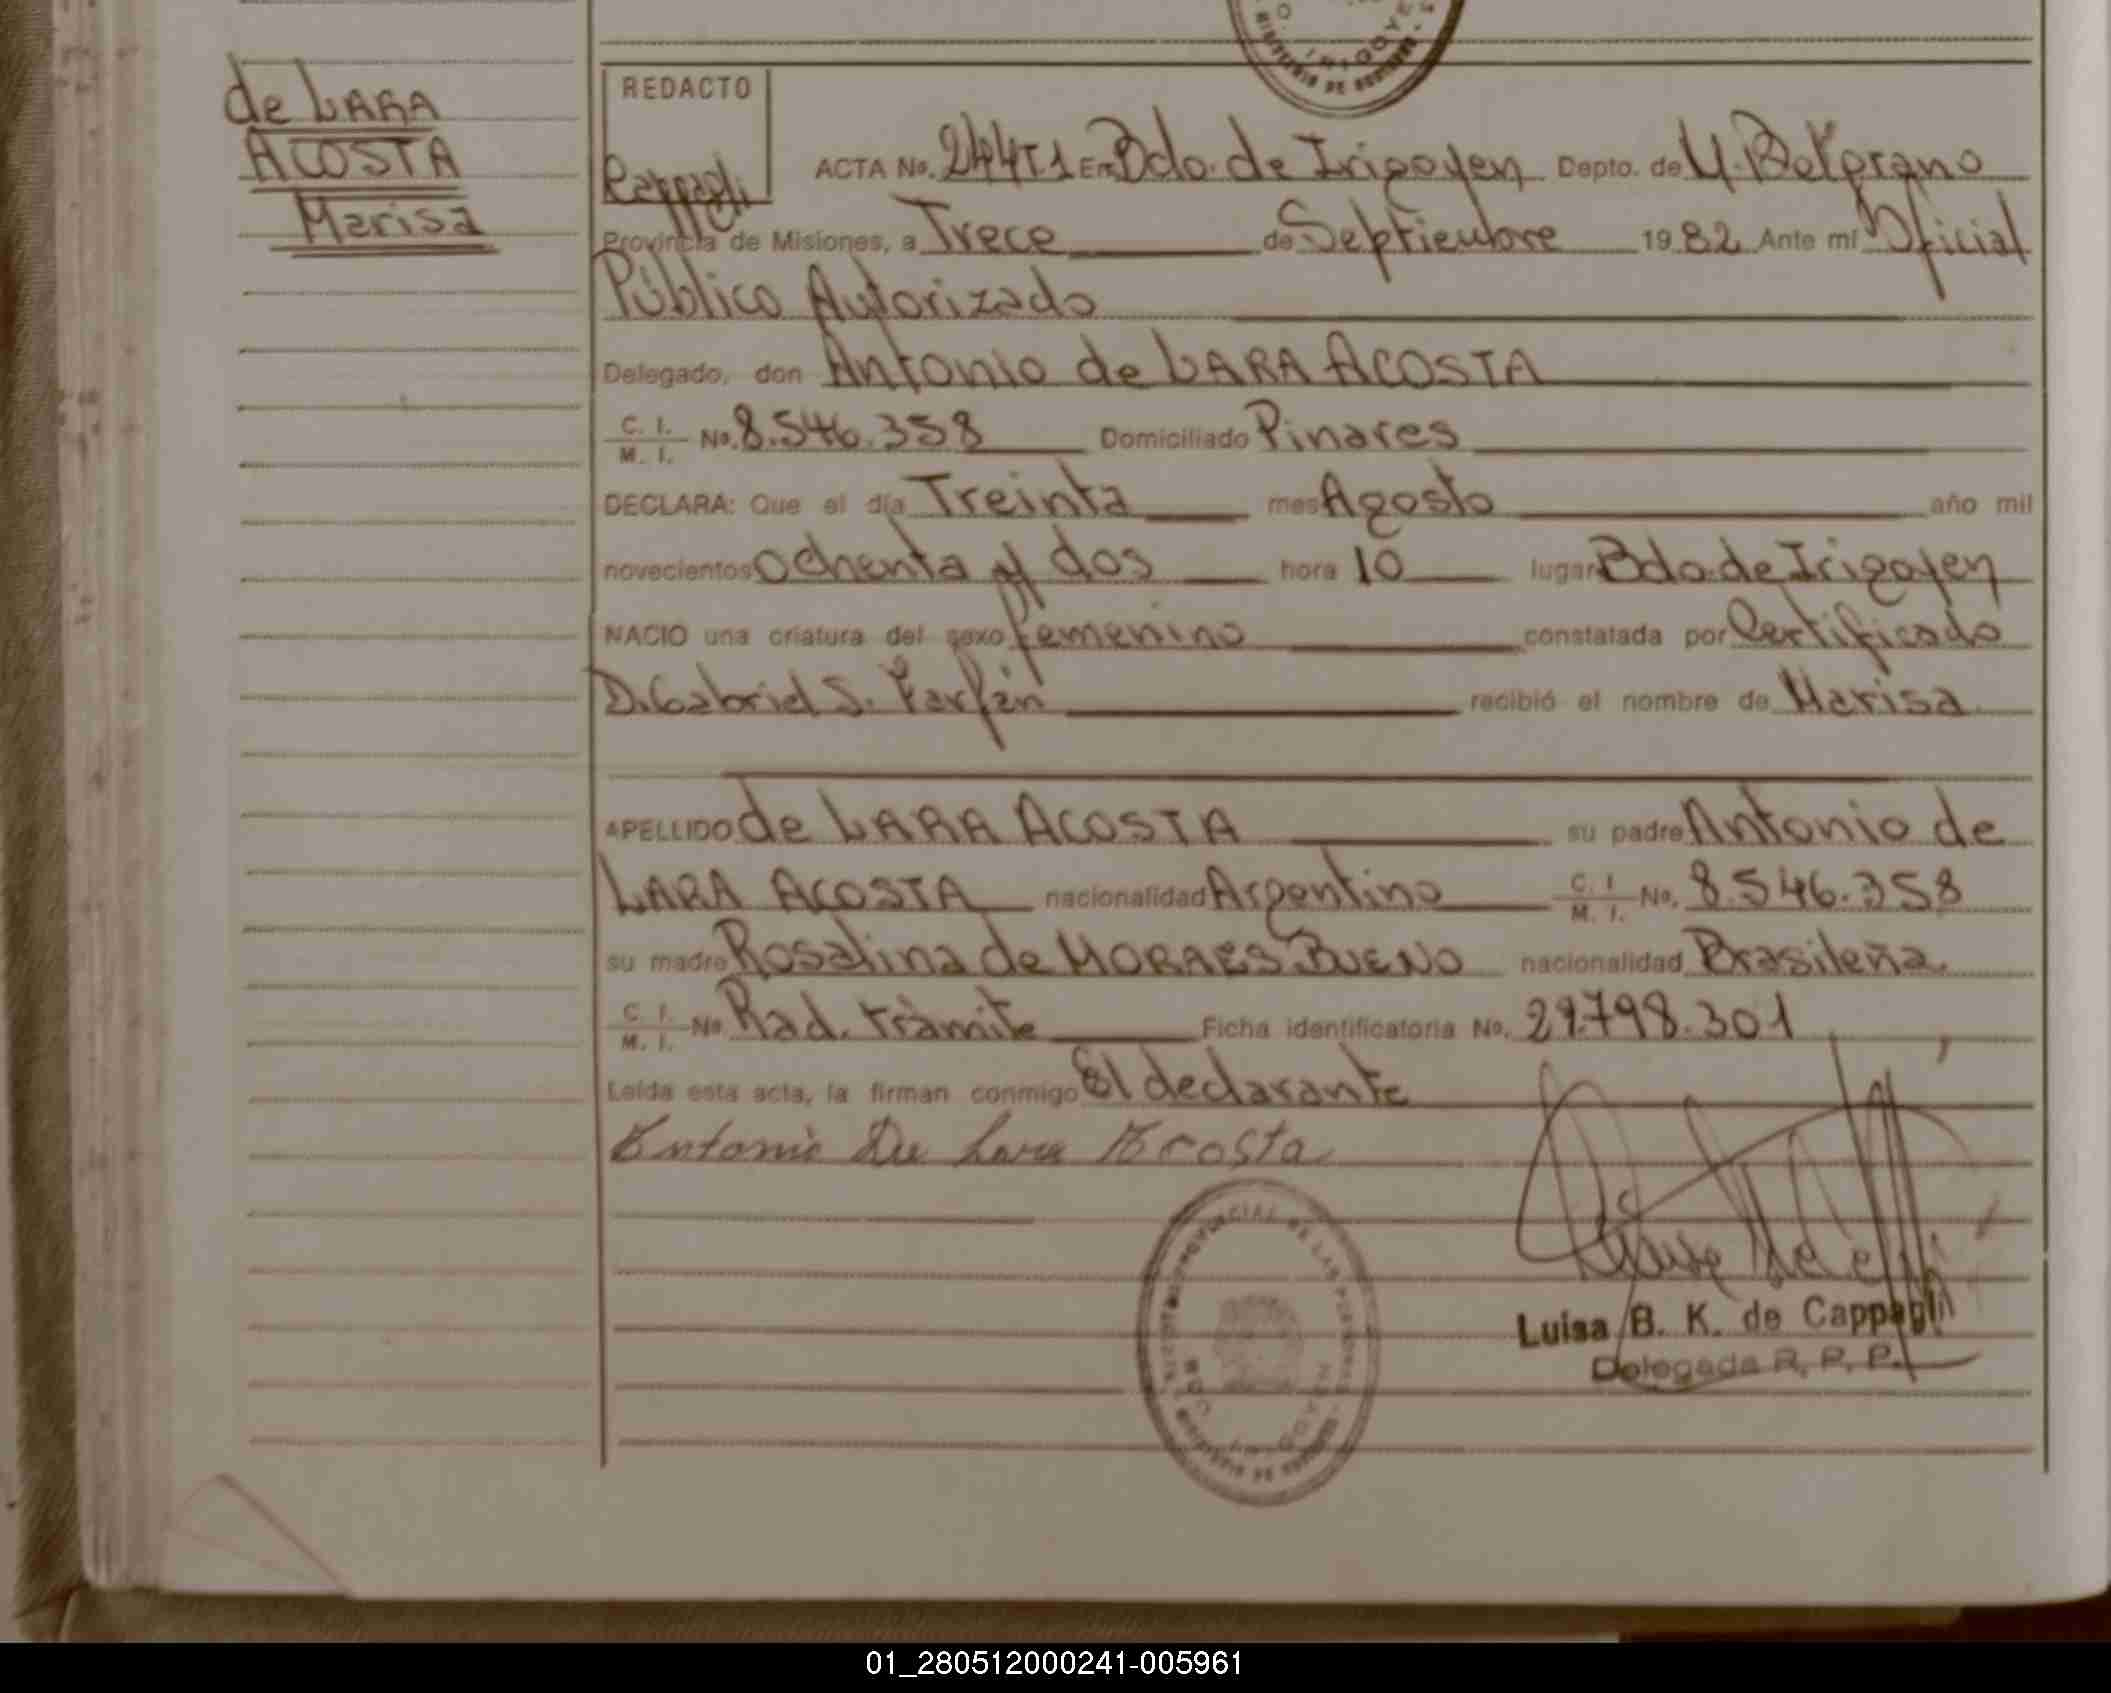 de LARA
ACOSTA
Marisa
REDACTO
Cappagli
ACTA No. 244T.1 En Bdo. de Irigoyen Depto. de M. Belgrano
Provincia de Misiones, a Trece de Septiembre 1982 Ante mí Oficial
Público Autorizado
Delegado, don Antonio de LARA ACOSTA
C. I. M. I. No. 8.546.358 Domiciliado Pinares
DECLARA: Que el día Treinta mes Agosto año mil
novecientos ochenta y dos hora 10 lugar Bdo. de Irigoyen
NACIO una criatura del sexo femenino constatada por Certificado
D. Gabriel S. Farfán recibió el nombre de Marisa
APELLIDO de LARA ACOSTA su padre Antonio de
LARA ACOSTA nacionalidad Argentino C. I. M. I. No. 8.546.358
su madre Rosalina de MORAES BUENO nacionalidad Brasileña.
C. I. M. I. No Rad. trámite Ficha identificatoria No. 29.798.301
Leída esta acta, la firman conmigo El declarante
Antonio De Lara Acosta
Luisa B. K. de Cappagli
Delegada R. P. P.
PROVINCIAL DE LAS PERSONAS
MINISTERIO DE GOBIERNO
BDO. IRIGOYEN
01_280512000241-005961